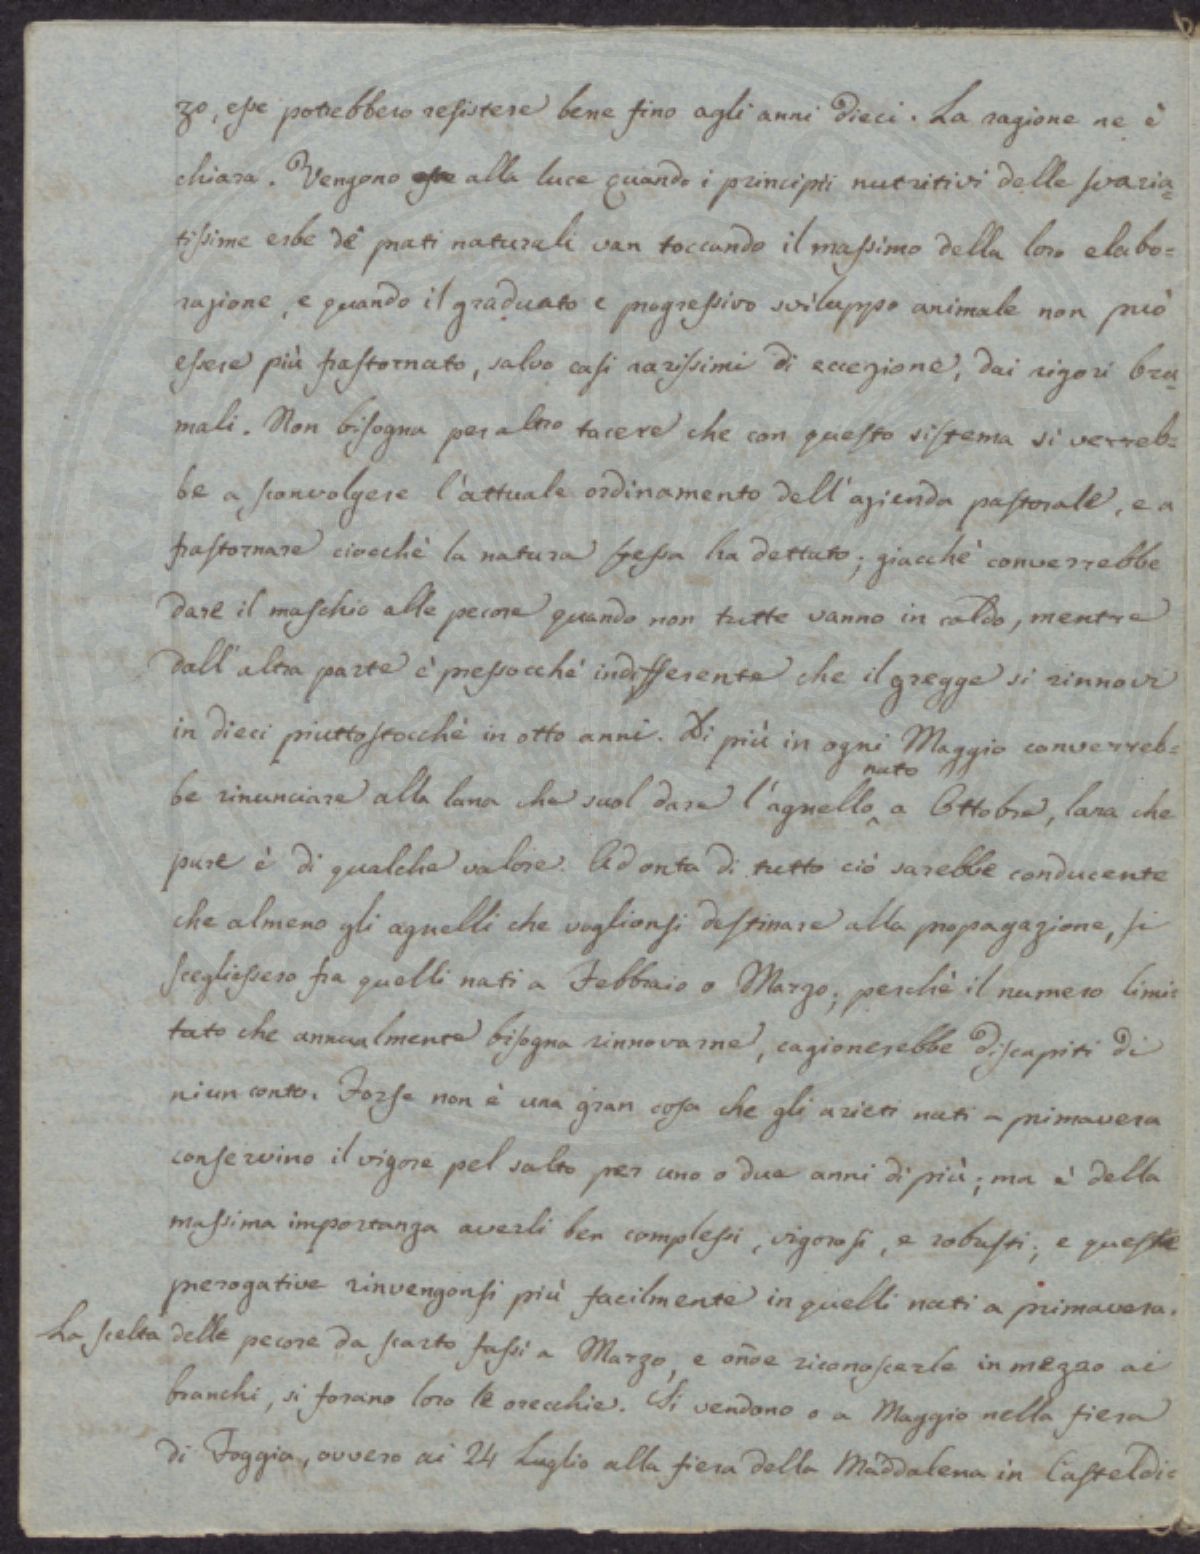 zo, esse potrebbero resistere bene fino agli anni dieci. La ragione ne è
chiara. Vengono esse alla luce quando i principii nutritivi delle svaria=
tissime erbe de' prati naturali van toccando il massimo della loro elabo=
razione, e quando il graduato e progressivo sviluppo animale non può
essere più frastornato, salvo casi rarissimi di eccezione, dai rigori bru=
mali. Non bisogna per altro tacere che con questo sistema si verreb=
be a sconvolgere l'attuale ordinamento dell'azienda pastorale, e a
frastornare ciocchè la natura stessa ha dettato; giacchè converrebbe
dare il maschio alle pecore quando non tutte vanno in caldo, mentre
dall'altra parte è pressocchè indifferente che il gregge si rinnovi
in dieci piuttostocchè in otto anni. Di più in ogni Maggio converreb=
be rinunciare alla lana che suol dare l'agnello nato a Ottobre, lana che
pure è di qualche valore. Ad onta di tutto ciò sarebbe conducente
che almeno gli agnelli che voglionsi destinare alla propagazione, si
scegliessero fra quelli nati a Febbraio o Marzo; perchè il numero limi=
tato che annualmente bisogna rinnovarne, cagionerebbe discapiti di
niun conto. Forse non è una gran cosa che gli arieti nati a primavera
conservino il vigore pel salto per uno o due anni di più; ma è della
massima importanza averli ben complessi, vigorosi, e robusti; e queste
prerogative rinvengonsi più facilmente in quelli nati a primavera.
La scelta delle pecore da scarto fassi a Marzo, e onde riconoscerle in mezzo ai
branchi, si forano loro le orecchie. Si vendono o a Maggio nella fiera
di Foggia, ovvero ai 24 Luglio alla fiera della Maddalena in Casteldi=